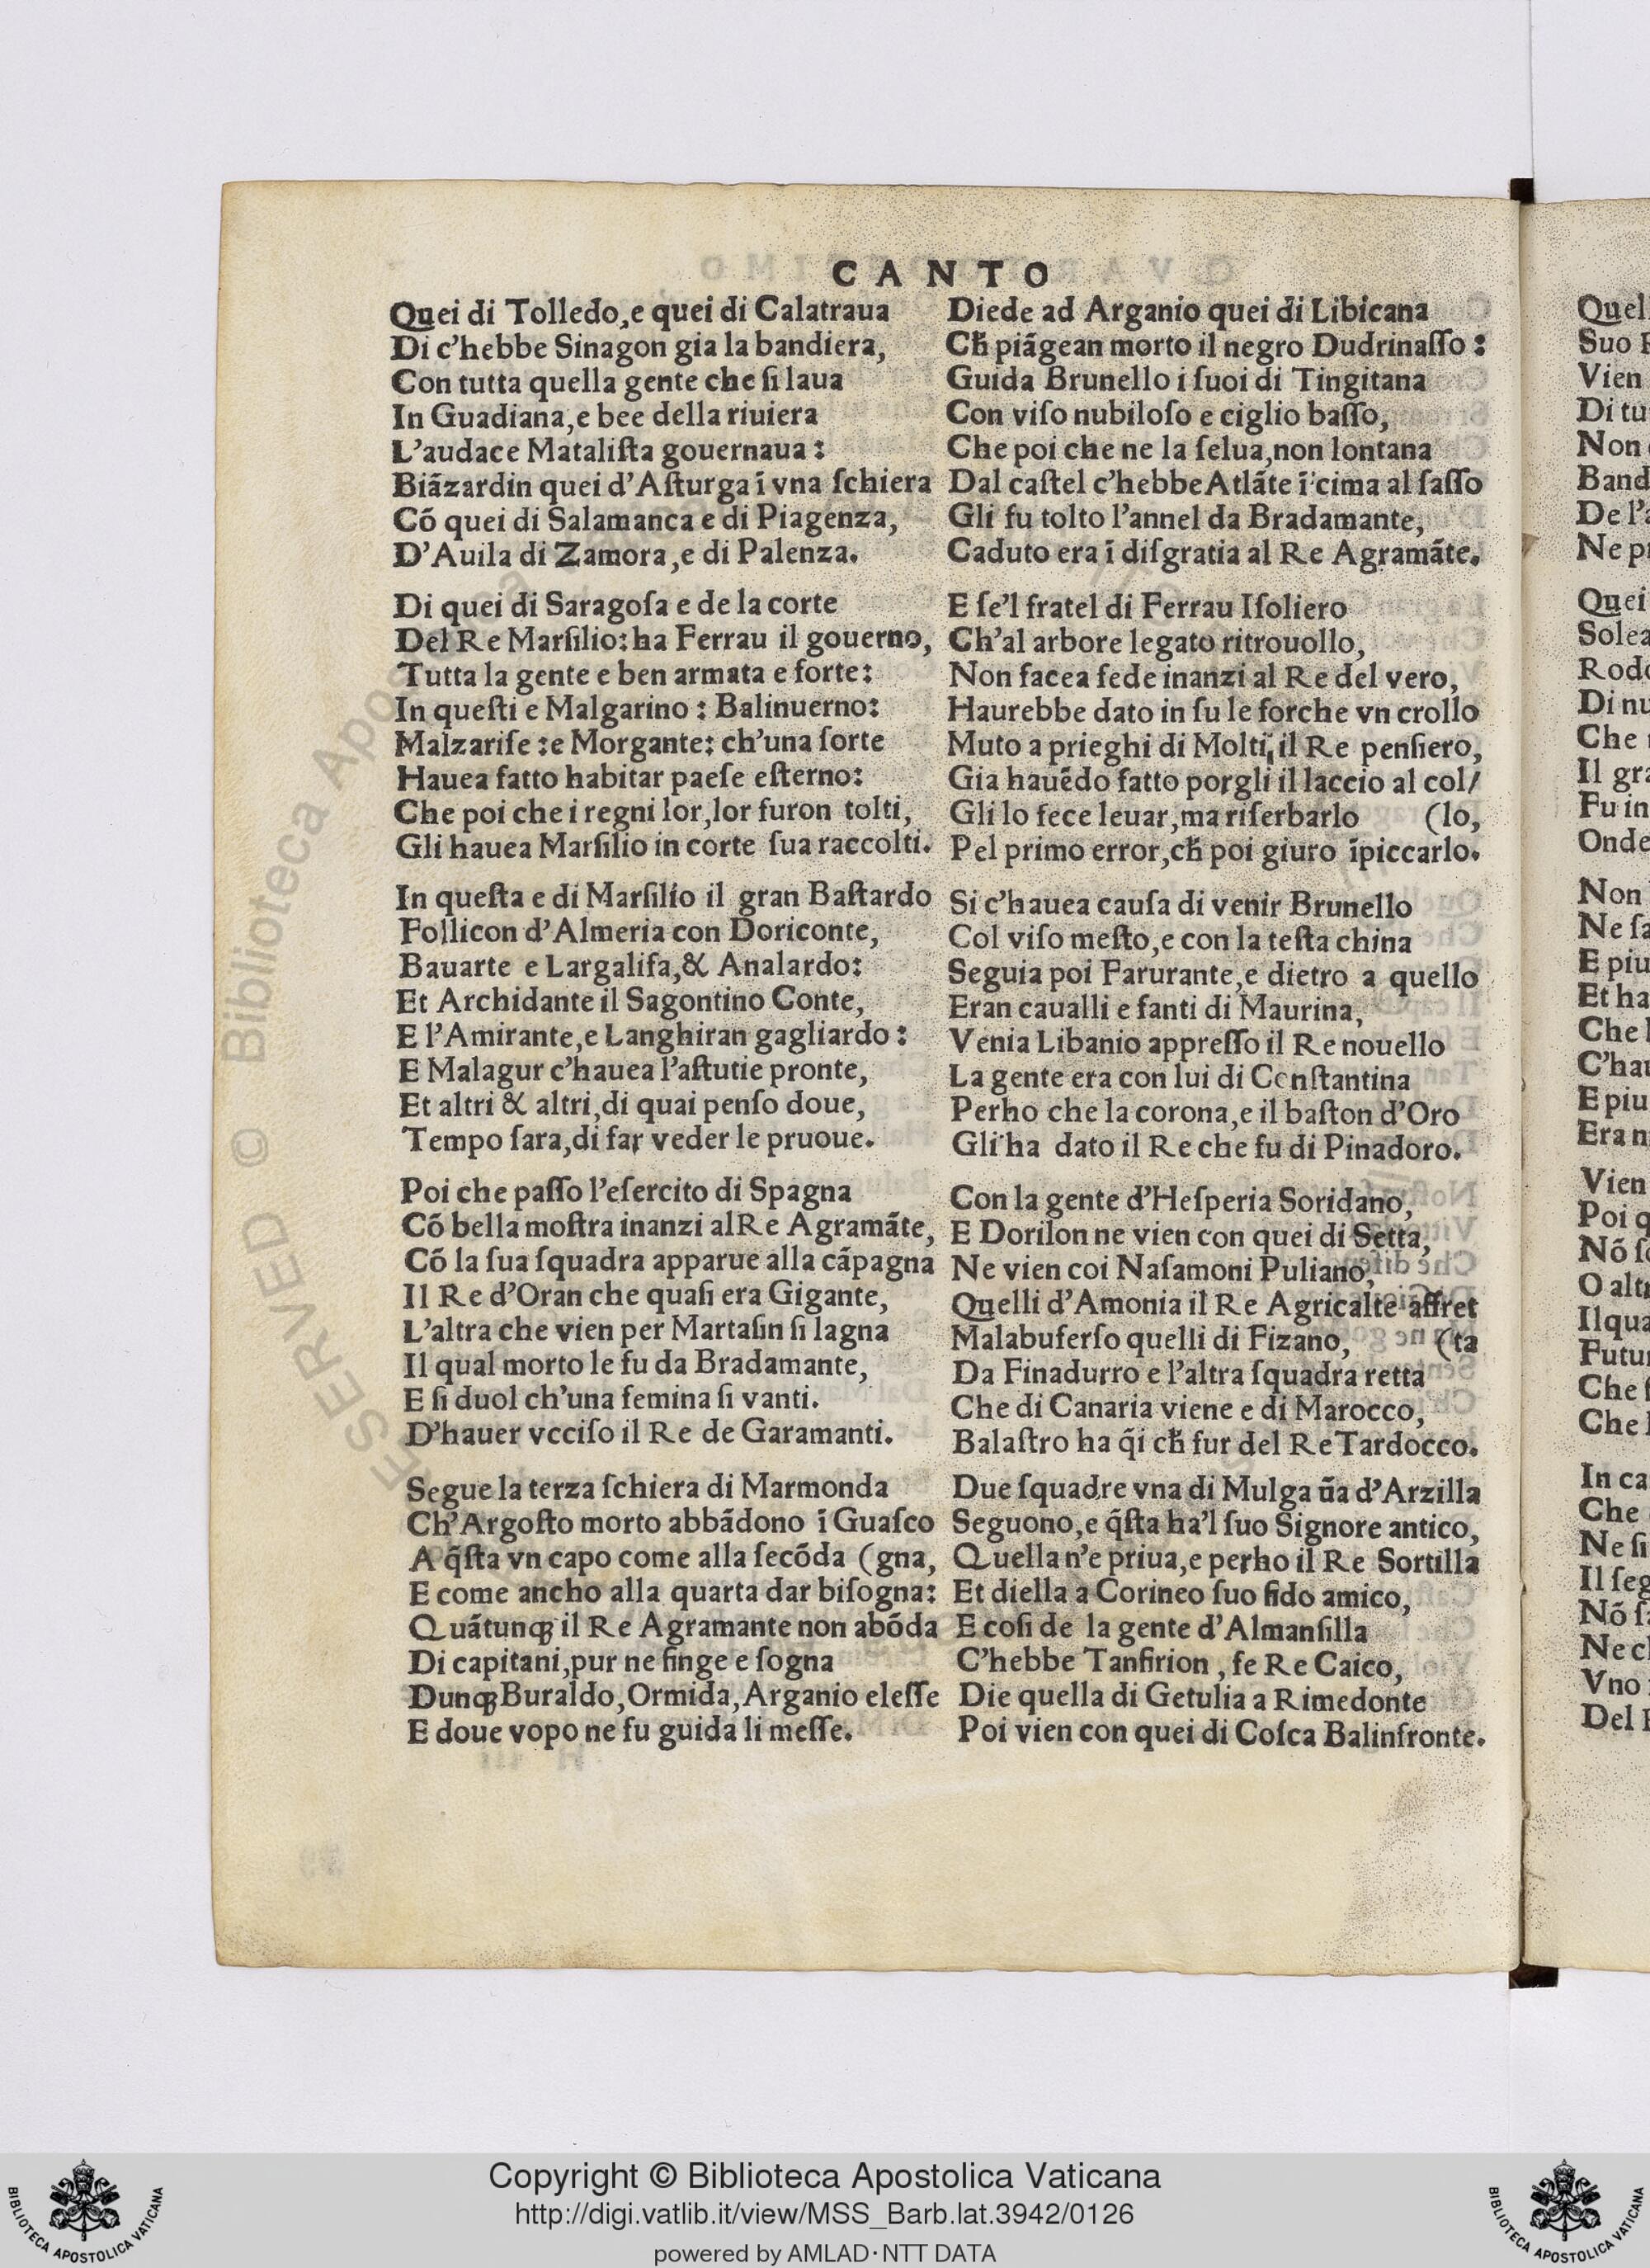 CANTO
Quei di Tolledo,e quei di Calatraua
Di c'hebbe Sinagon gia la bandiera,
Con tutta quella gente che ſi laua
In Guadiana,e bee della riuiera
L'audace Mataliſta gouernaua:
Biãzardin quei d'Aſturga ĩ vna ſchiera
Cõ quei di Salamanca e di Piagenza,
D'Auila di Zamora,e di Palenza.
Di quei di Saragoſa e de la corte
Del Re Marſilio:ha Ferrau il gouerno,
Tutta la gente e ben armata e forte:
In queſti e Malgarino: Balinuerno:
Malzariſe:e Morgante:ch'una ſorte
Hauea fatto habitar paeſe eſterno:
Che poi che i regni lor,lor furon tolti,
Gli hauea Marſilio in corte ſua raccolti.
In queſta e di Marſilio il gran Baſtardo
Follicon d'Almeria con Doriconte,
Bauarte e Largalifa,& Analardo:
Et Archidante il Sagontino Conte,
E l'Amirante,e Langhiran gagliardo:
E Malagur c'hauea l'aſtutie pronte,
Et altri & altri,di quai penſo doue,
Tempo ſara,di far veder le pruoue.
Poi che paſſo l'eſercito di Spagna
Cõ bella moſtra inanzi al Re Agramãte,
Cõ la ſua ſquadra apparue alla cãpagna
Il Re d'Oran che quaſi era Gigante,
L'altra che vien per Martaſin ſi lagna
Il qual morto le fu da Bradamante,
E ſi duol ch'una femina ſi vanti.
D'hauer vcciſo il Re de Garamanti.
Segue la terza ſchiera di Marmonda
Ch'Argoſto morto abbãdono ĩ Guaſco
A q̃ſta vn capo come alla ſecõda (gna,
E come ancho alla quarta dar biſogna:
Quãtunqꝫ il Re Agramante non abõda
Di capitani,pur ne finge e ſogna
Dunqꝫ Buraldo,Ormida,Arganio eleſſe
E doue vopo ne fu guida li meſſe.
Diede ad Arganio quei di Libicana
Cħ piãgean morto il negro Dudrinaſſo:
Guida Brunello i ſuoi di Tingitana
Con viſo nubiloſo e ciglio baſſo,
Che poi che ne la ſelua,non lontana
Dal caſtel c'hebbe Atlãte ĩ cima al ſaſſo
Gli fu tolto l'annel da Bradamante,
Caduto era ĩ diſgratia al Re Agramãte.
E ſe'l fratel di Ferrau Iſoliero
Ch'al arbore legato ritrouollo,
Non facea fede inanzi al Re del vero,
Haurebbe dato in ſu le forche vn crollo
Muto a prieghi di Molti,il Re penſiero,
Gia hauẽdo fatto porgli il laccio al col/
Gli lo fece leuar,ma riſerbarlo (lo,
Pel primo error,cħ poi giuro ĩpiccarlo.
Si c'hauea cauſa di venir Brunello
Col viſo meſto,e con la teſta china
Seguia poi Farurante,e dietro a quello
Eran caualli e fanti di Maurina,
Venia Libanio appreſſo il Re nouello
La gente era con lui di Conſtantina
Perho che la corona,e il baſton d'Oro
Gli ha dato il Re che fu di Pinadoro.
Con la gente d'Heſperia Soridano,
E Dorilon ne vien con quei di Setta,
Ne vien coi Naſamoni Puliano,
Quelli d'Amonia il Re Agricalte affret
Malabuferſo quelli di Fizano, (ta
Da Finadurro e l'altra ſquadra retta
Che di Canaria viene e di Marocco,
Balaſtro ha q̃i cħ fur del Re Tardocco.
Due ſquadre vna di Mulga ũa d'Arzilla
Seguono,e q̃ſta ha'l ſuo Signore antico,
Quella n'e priua,e perho il Re Sortilla
Et diella a Corineo ſuo fido amico,
E coſi de la gente d'Almanſilla
C'hebbe Tanfirion, fe Re Caico,
Die quella di Getulia a Rimedonte
Poi vien con quei di Coſca Balinfronte.
Quel
Suo
Vien
Di tu
Non
Band
De l'
Ne
Quei
Solea
Rod
Di nu
Che
Il gra
Fu in
Onde
Non
Ne ſa
E piu
Et ha
Che
C'hau
E piu
Era n
Vien
Poi q
Nõ
O alt
Il qua
Futu
Che
Che
In ca
Che
Ne ſi
Il ſeg
Nõ
Ne c
Vno
Del
ESERVED © Biblioteca Apo
Copyright © Biblioteca Apostolica Vaticana
http://digi.vatlib.it/view/MSS_Barb.lat.3942/0126
powered by AMLAD·NTT DATA
BIBLIOTECA APOSTOLICA VATICANA
BIBLIOTECA APOSTOLICA VATICANA